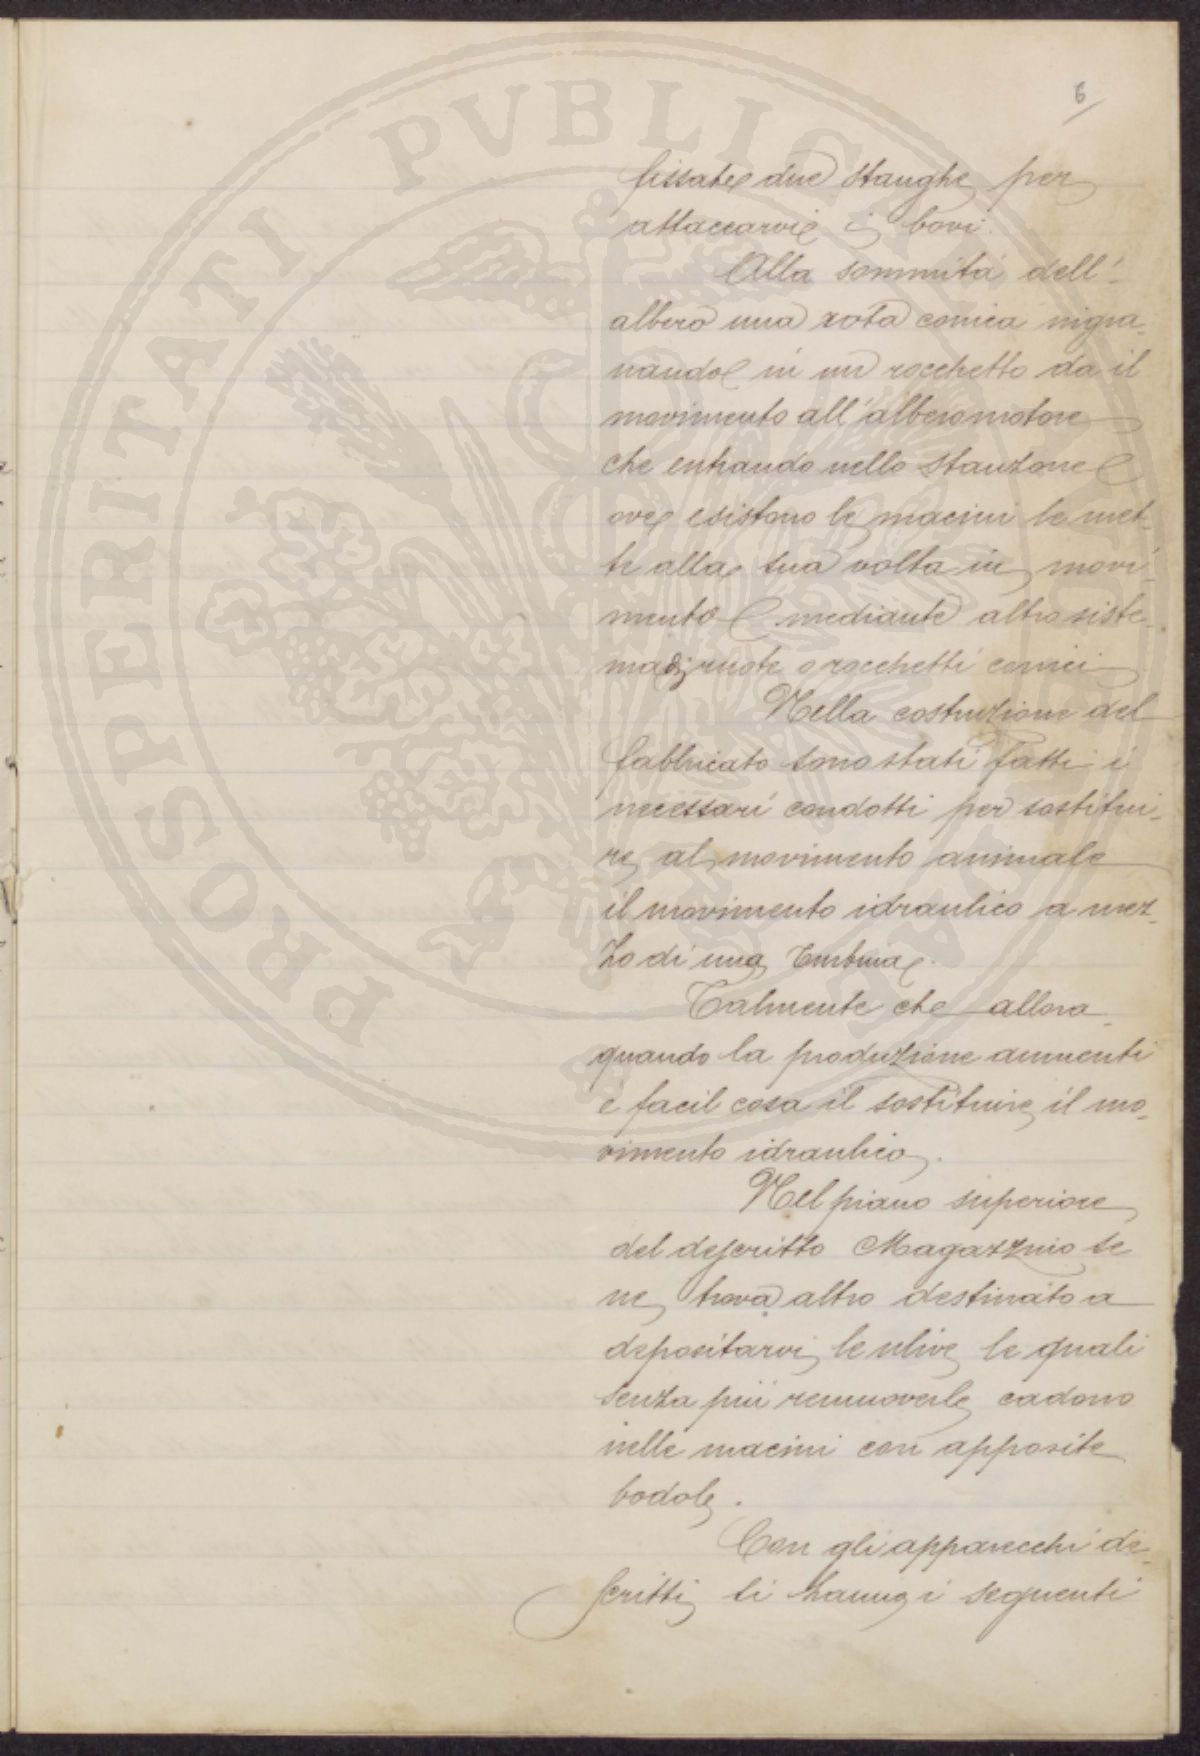 6
fissate due stanghe per
attaccarvi i bovi.
Alla sommità dell'
albero una rota conica ingra-
nando in un rocchetto da il
movimento all'albero motore
che entrando nello stanzone
ove esistono le macini le met-
te alla sua volta in movi-
mento mediante altro siste-
ma di ruote o rocchetti conici
Nella costruzione del
fabbricato sono stati fatti i
necessari condotti per sostitui-
re al movimento animale
il movimento idraulico a mez-
zo di una Turbina.
Talmente che allora-
quando la produzione aumenti
è facil cosa il sostituire il mo-
vimento idraulico.
Nel piano superiore
del descritto Magazzino se
ne trova altro destinato a
depositarvi le ulive le quali
senza più remuoverle cadono
nelle macini con apposite
bodole.
Con gli apparecchi de-
scritti si hanno i seguenti
PROSPERITATI PVBLICAE